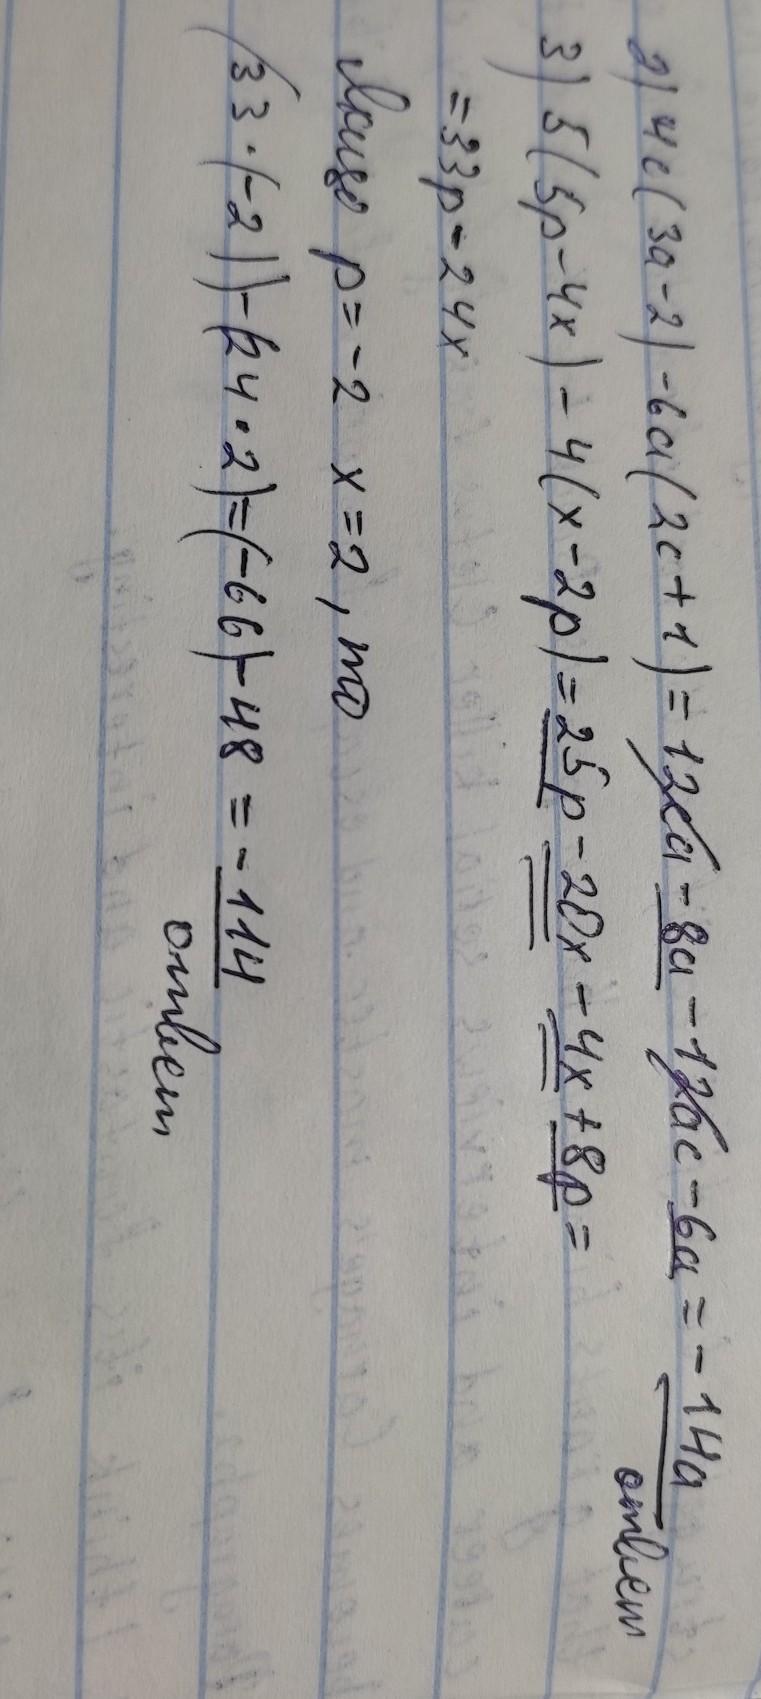 2) 4c(3a-2)-6a(2c+1)=12ca-8a-12ac-6a=-14a
ответ
3) 5(5p-4x)-4(x-2p)=25p-20x-4x+8p=
=33p-24x
p=-2 x=2, то
(33·(-2))-(24·2)=(-66)-48=-114
ответ